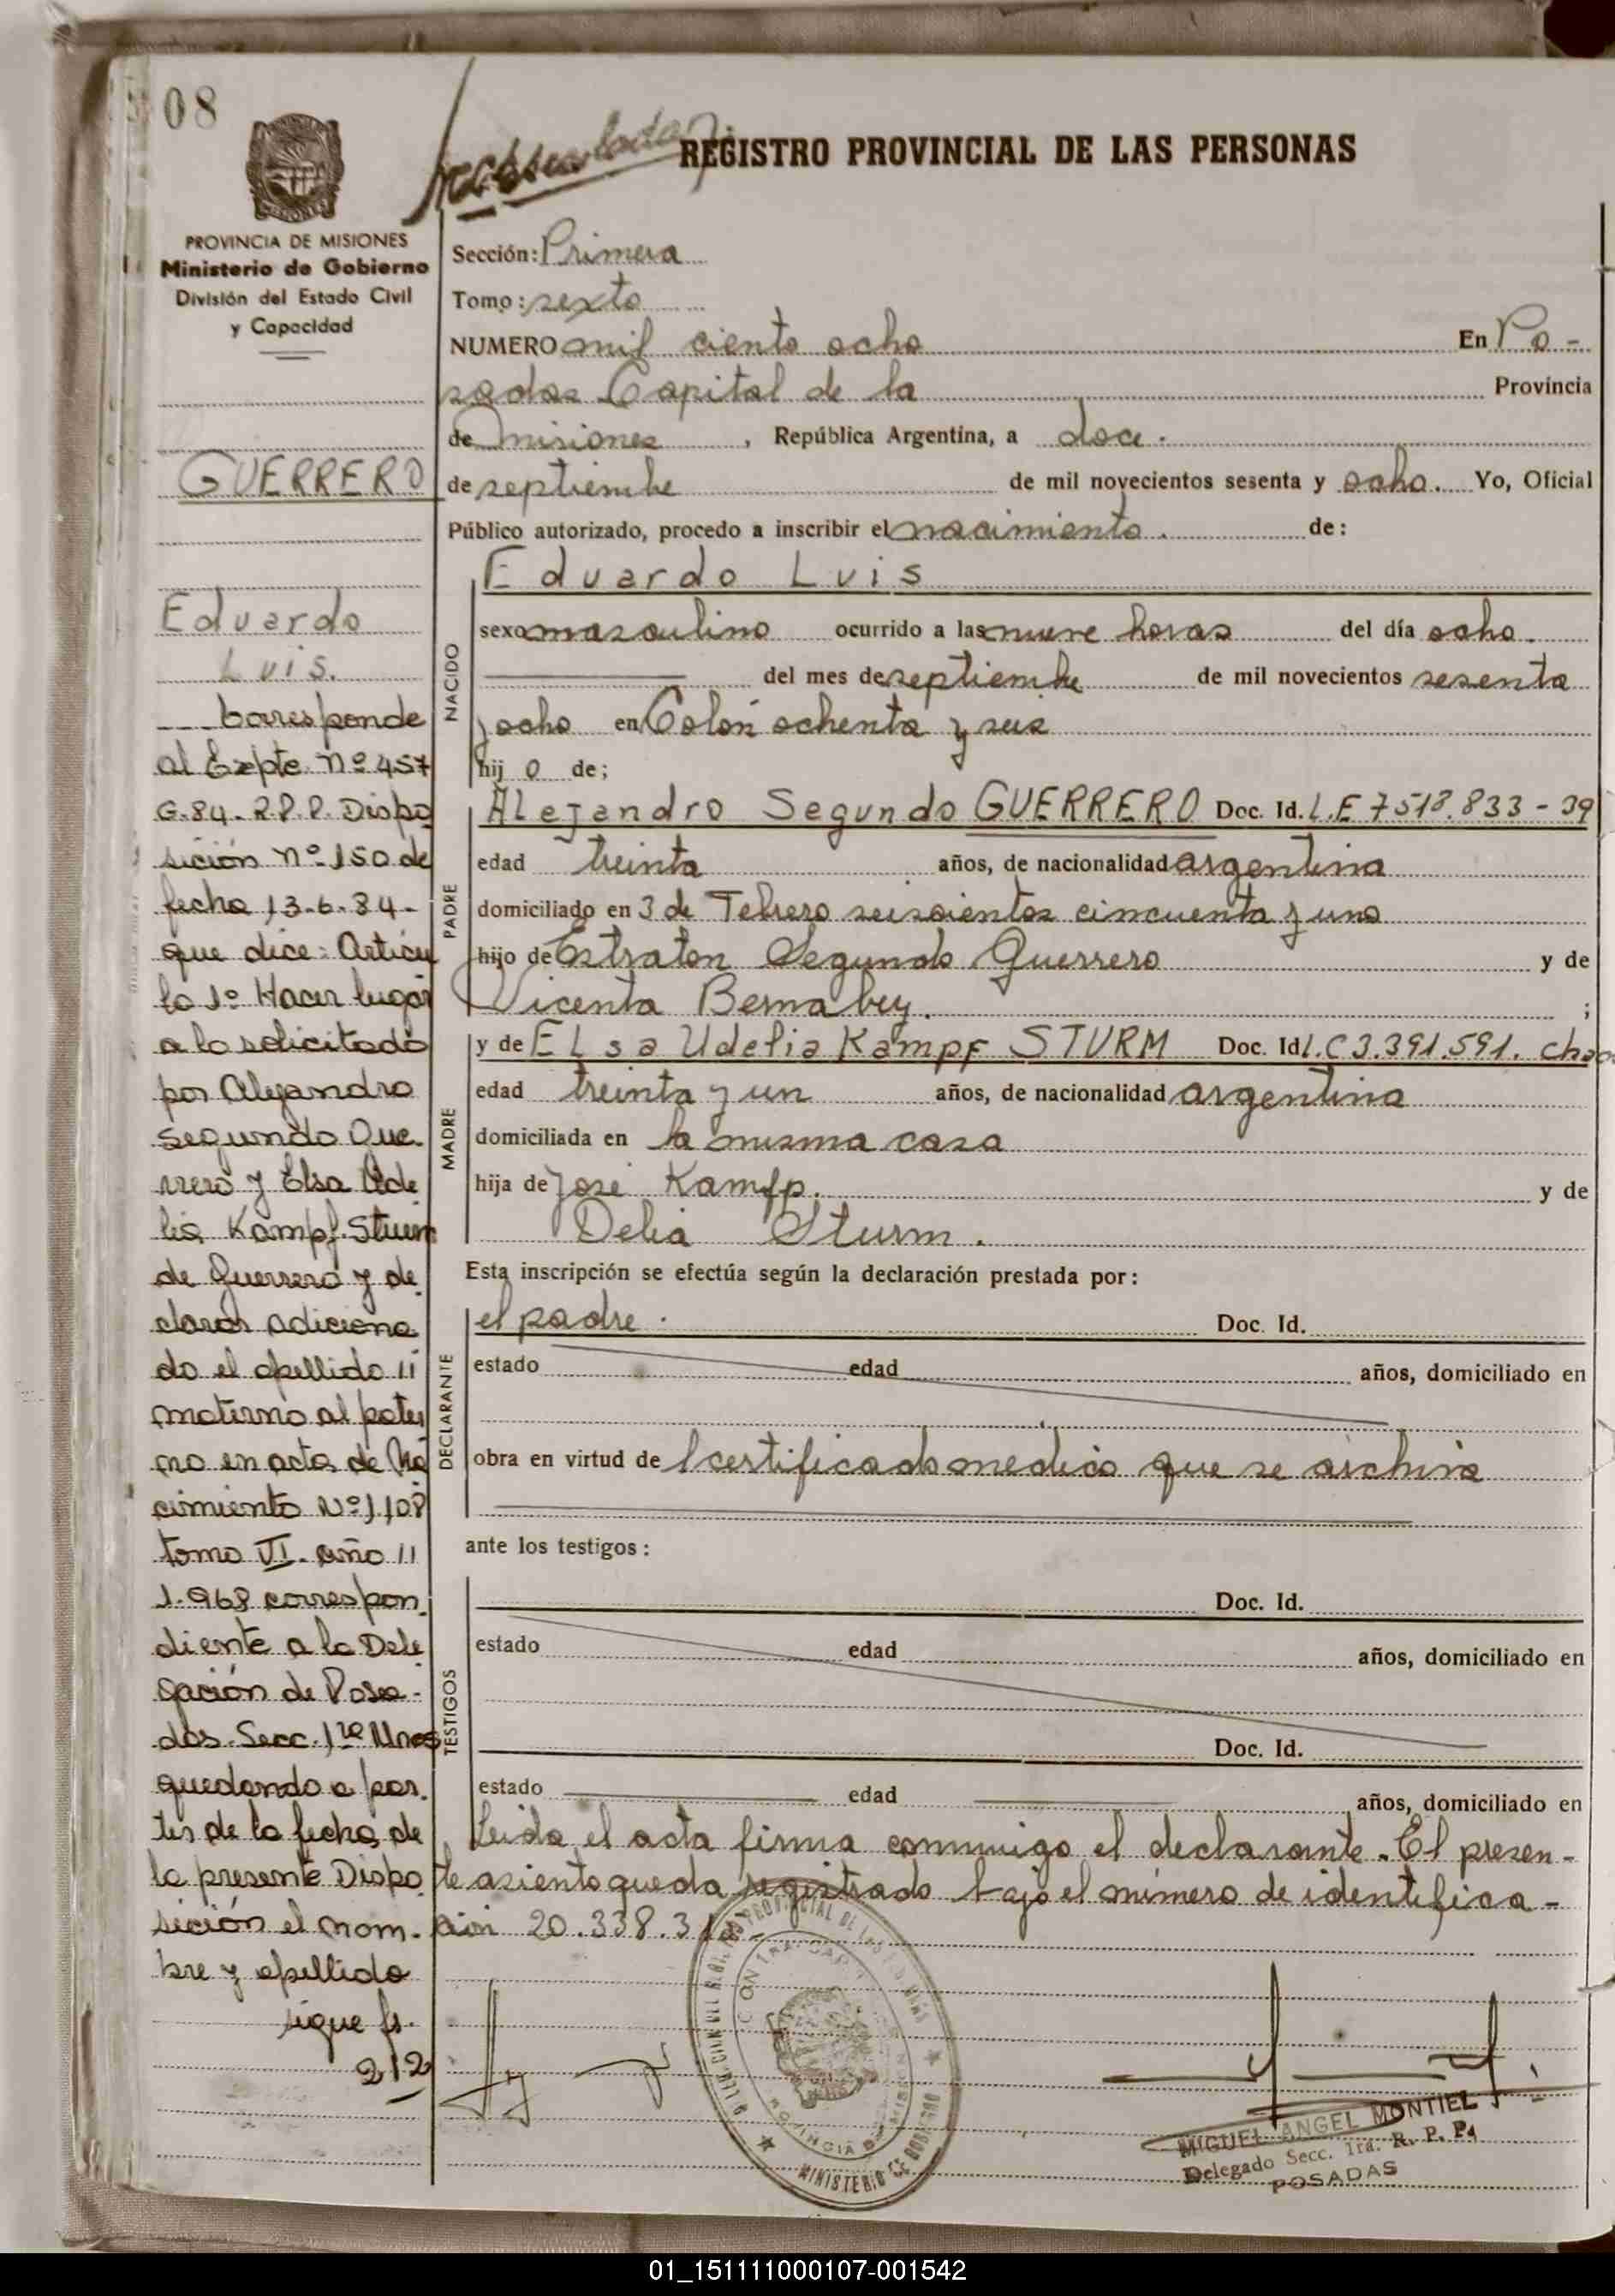 08
REGISTRO PROVINCIAL DE LAS PERSONAS
PROVINCIA DE MISIONES
Ministerio de Gobierno
División del Estado Civil
y Capacidad
GUERRERO
Eduardo
Luis.
Corresponde
al Expte. Nº 457
G. 84. R.P.P. Dispo
sición nº 150 de
fecha 13-6-84-
que dice: Artícu
lo 1º Hacer lugar
a lo solicitado
por Alejandro
Segundo Gue.
rrero y Elsa Ude
lia Kampf Sturm
de Guerrero y de
clarar adiciona
do el apellido II
materno al pater
no en acta de Na
cimiento Nº 1.108
tomo VI. año II
1.968 correspon.
diente a la Dele
gación de Posa-
das. Secc. 1ra
quedando a par.
tir de la fecha de
la presente Dispo
sición el nom.
bre y apellido
sigue fs.
212
Sección: Primera
Tomo: sexto
NUMERO mil ciento ocho En Po-
sadas Capital de la Provincia
de Misiones, República Argentina, a doce.
de septiembre de mil novecientos sesenta y ocho. Yo, Oficial
Público autorizado, procedo a inscribir el nacimiento. de:
NACIDO
Eduardo Luis
sexo masculino ocurrido a las nueve horas del día ocho.
del mes de septiembre de mil novecientos sesenta
y ocho en Colón ochenta y seis
hijo de;
PADRE
Alejandro Segundo GUERRERO Doc. Id. L.E 7518.833-39
edad treinta años, de nacionalidad argentina
domiciliado en 3 de Febrero seiscientos cincuenta y uno
hijo de Estraton Segundo Guerrero y de
Vicenta Bernabey. ;
MADRE
y de Elsa Udelia Kampf STURM Doc. Id L.C 3.391.591.
edad treinta y un años, de nacionalidad argentina
domiciliada en la misma casa
hija de José Kamfp. y de
Delia Sturm.
Esta inscripción se efectúa según la declaración prestada por:
DECLARANTE
el padre. Doc. Id.
estado edad años, domiciliado en
obra en virtud de l certificado medico que se archiva
ante los testigos:
TESTIGOS
Doc. Id.
estado edad años, domiciliado en
Doc. Id.
estado edad años, domiciliado en
Leida el acta firma conmigo el declarante. El presen-
te asiento queda registrado bajo el número de identifica-
ción 20.338.3
PROVINCIA DE MISIONES
MINISTERIO DE GOBIERNO
MIGUEL ANGEL MONTIEL
Delegado Secc. 1ra. R. P. P.
POSADAS
01_151111000107-001542